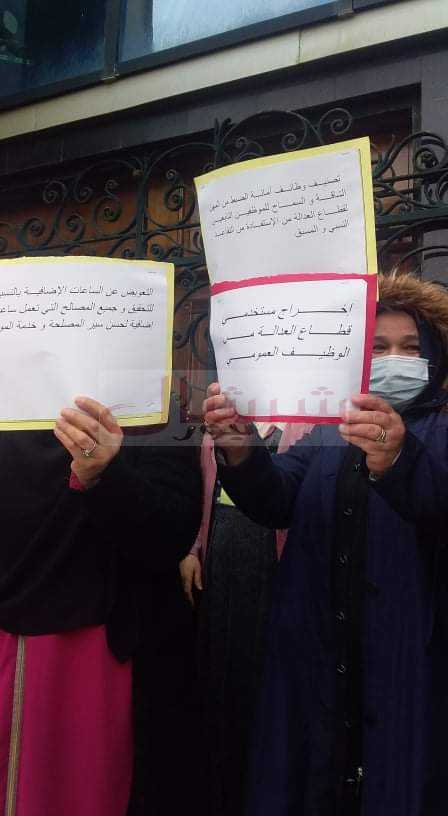 تصنيف وظائف أمانة الضبط من المهن
الشاقة و السماح للموظفين التابعين
لقطاع العدالة من الإستفادة من التقاعد
النسبي و المسبق
إخراج مستخدمي
قطاع العدالة من
الوظيف العمومي
التعويض عن الساعات الإضافية بالنسبة
للتحقق و جميع المصالح التي تعمل ساعات
إضافية لحسن سير المصلحة و خدمة